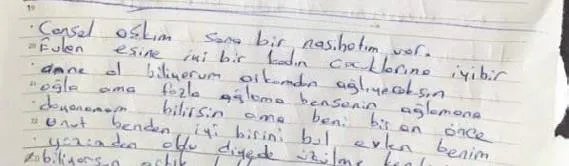 19
Cansel aşkım sana bir nasihatım var.
20 Evlen eşine iyi bir kadın Cocklarına iyi bir
anne ol biliyorum arkamdan ağlıyacaksın
21 ağla ama fazla ağlama ben senin ağlamana
dayanamam bilirsin ama beni bir an önce
22 Unut benden iyi birini bul evlen benim
yüzünden oldu diyede üzülme
biliyorsun artık